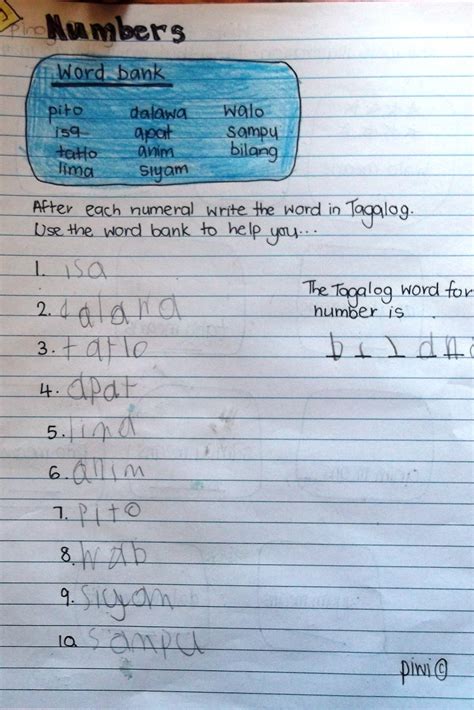 Numbers
Word bank
pito dalawa walo
isa apat sampu
tatlo anim bilang
lima siyam
After each numeral write the word in Tagalog.
Use the word bank to help you...
1. isa
The Tagalog word for
number is
2. dalawa
3. tatlo
bilan
4. apat
5. lima
6. anim
7. pito
8. walo
9. siyam
10 sampu
piwi©